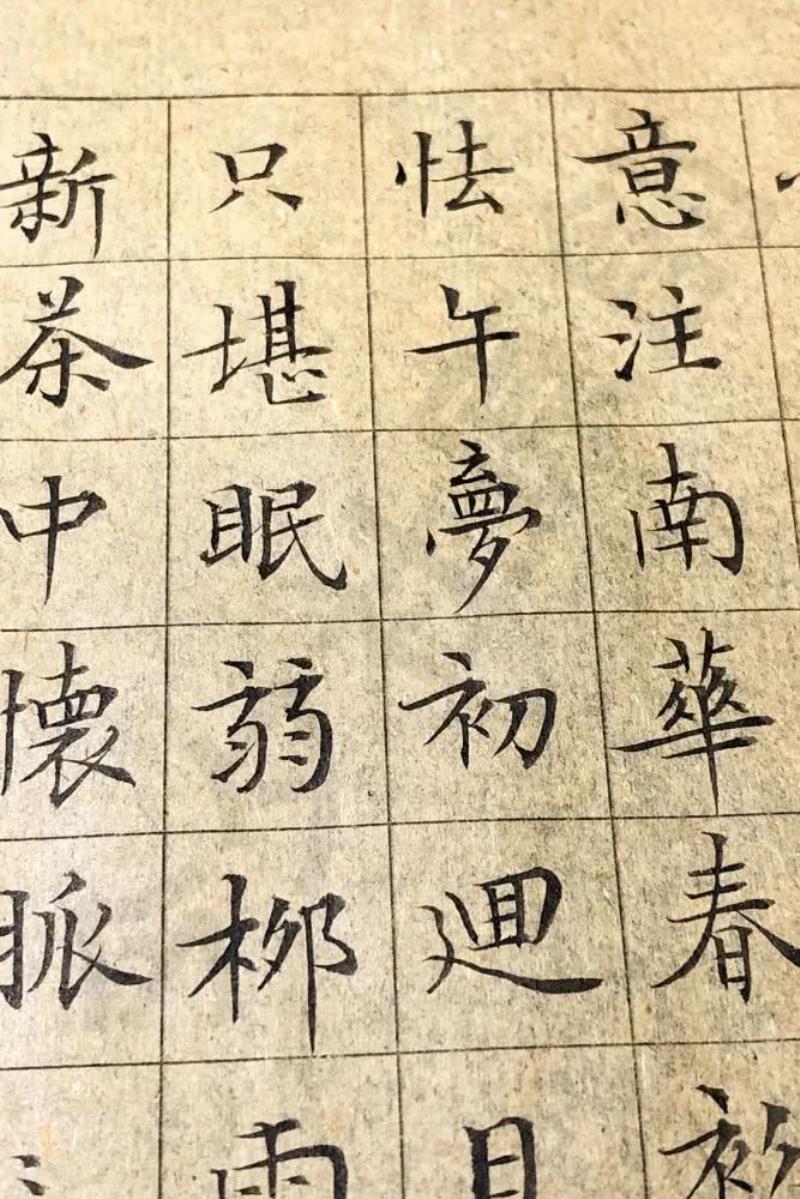 意注南華春
怯午夢初迴
只堪眠弱柳
新茶中懷脈